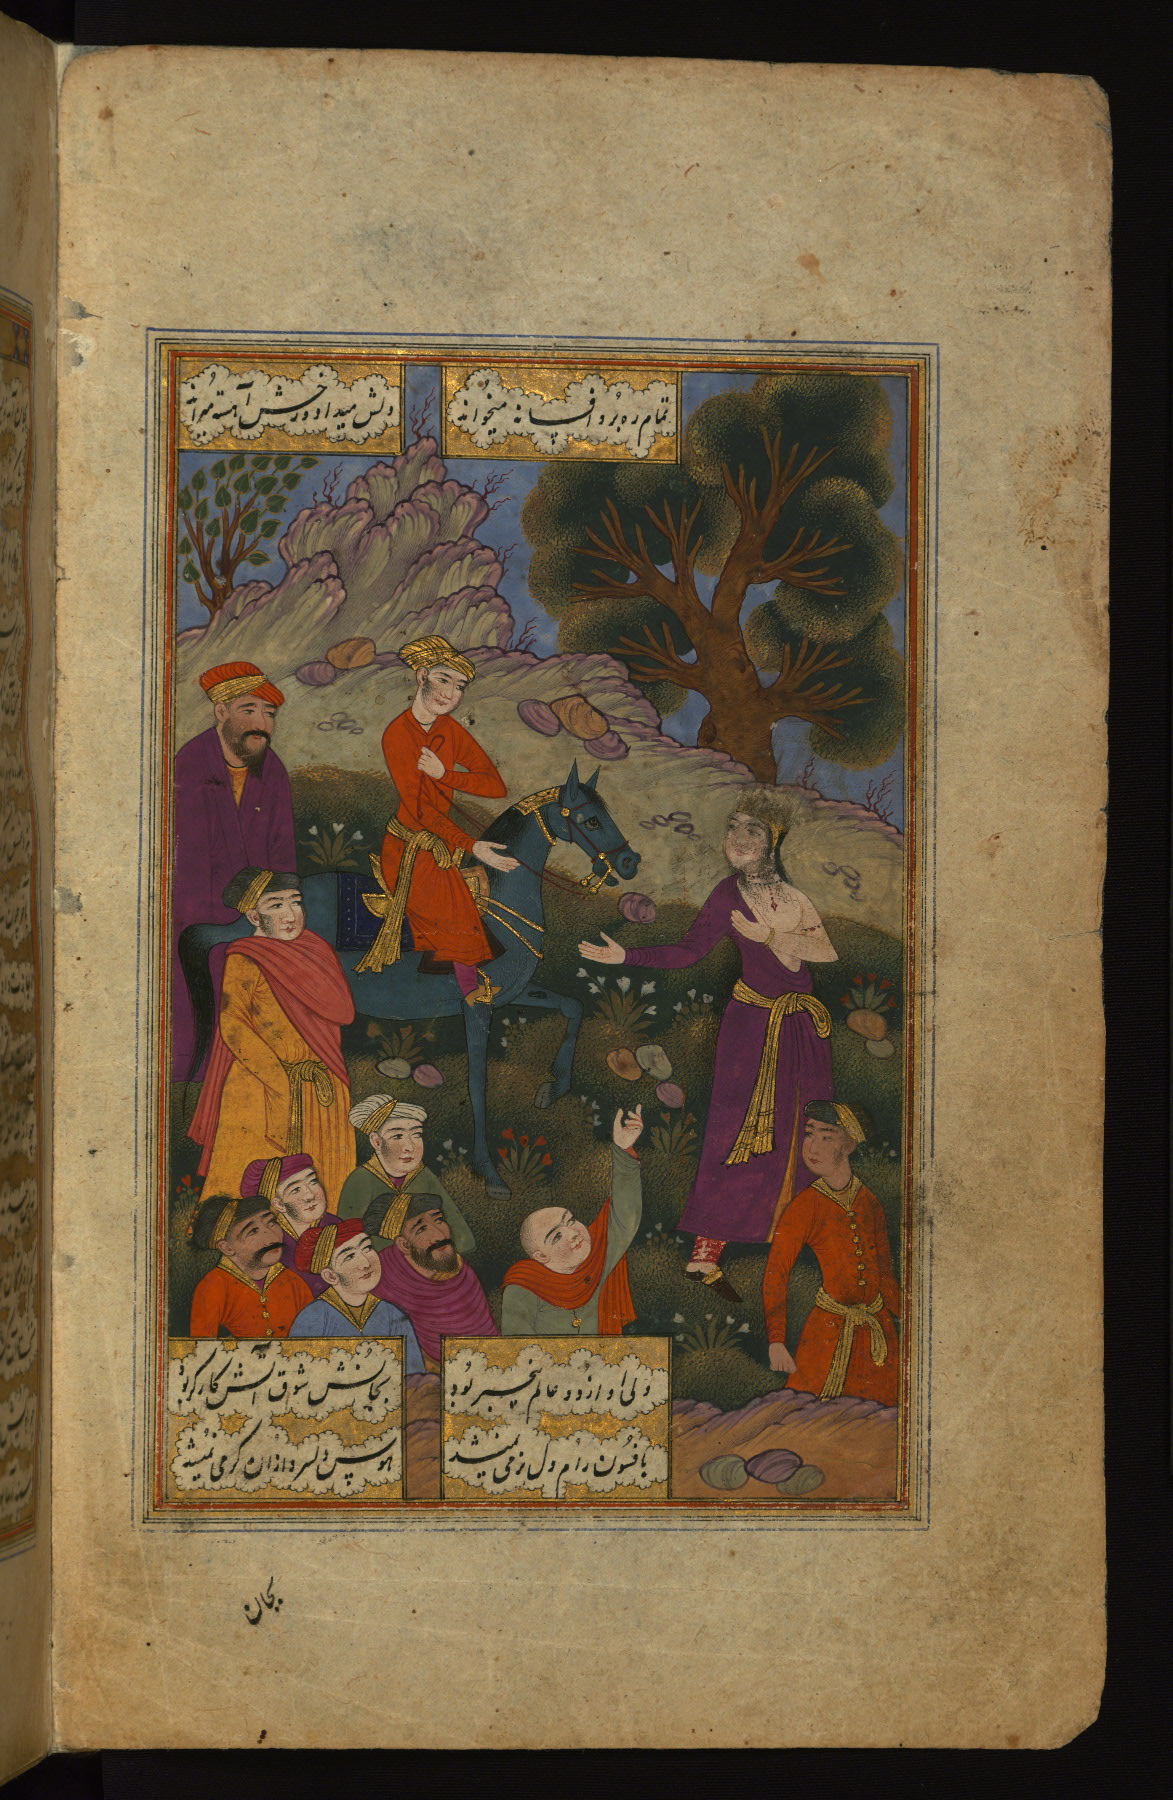 تمام ره برو افسانه میخواند
دلش میداد و رخش آهسته میراند
ولی او از دو عالم بیخبر بود
بجانش شوق آتش کارگر بود
بافسون رام دل نرمی نمیشد
هوس دلسرد ازان گرمی نمیشد
بجان